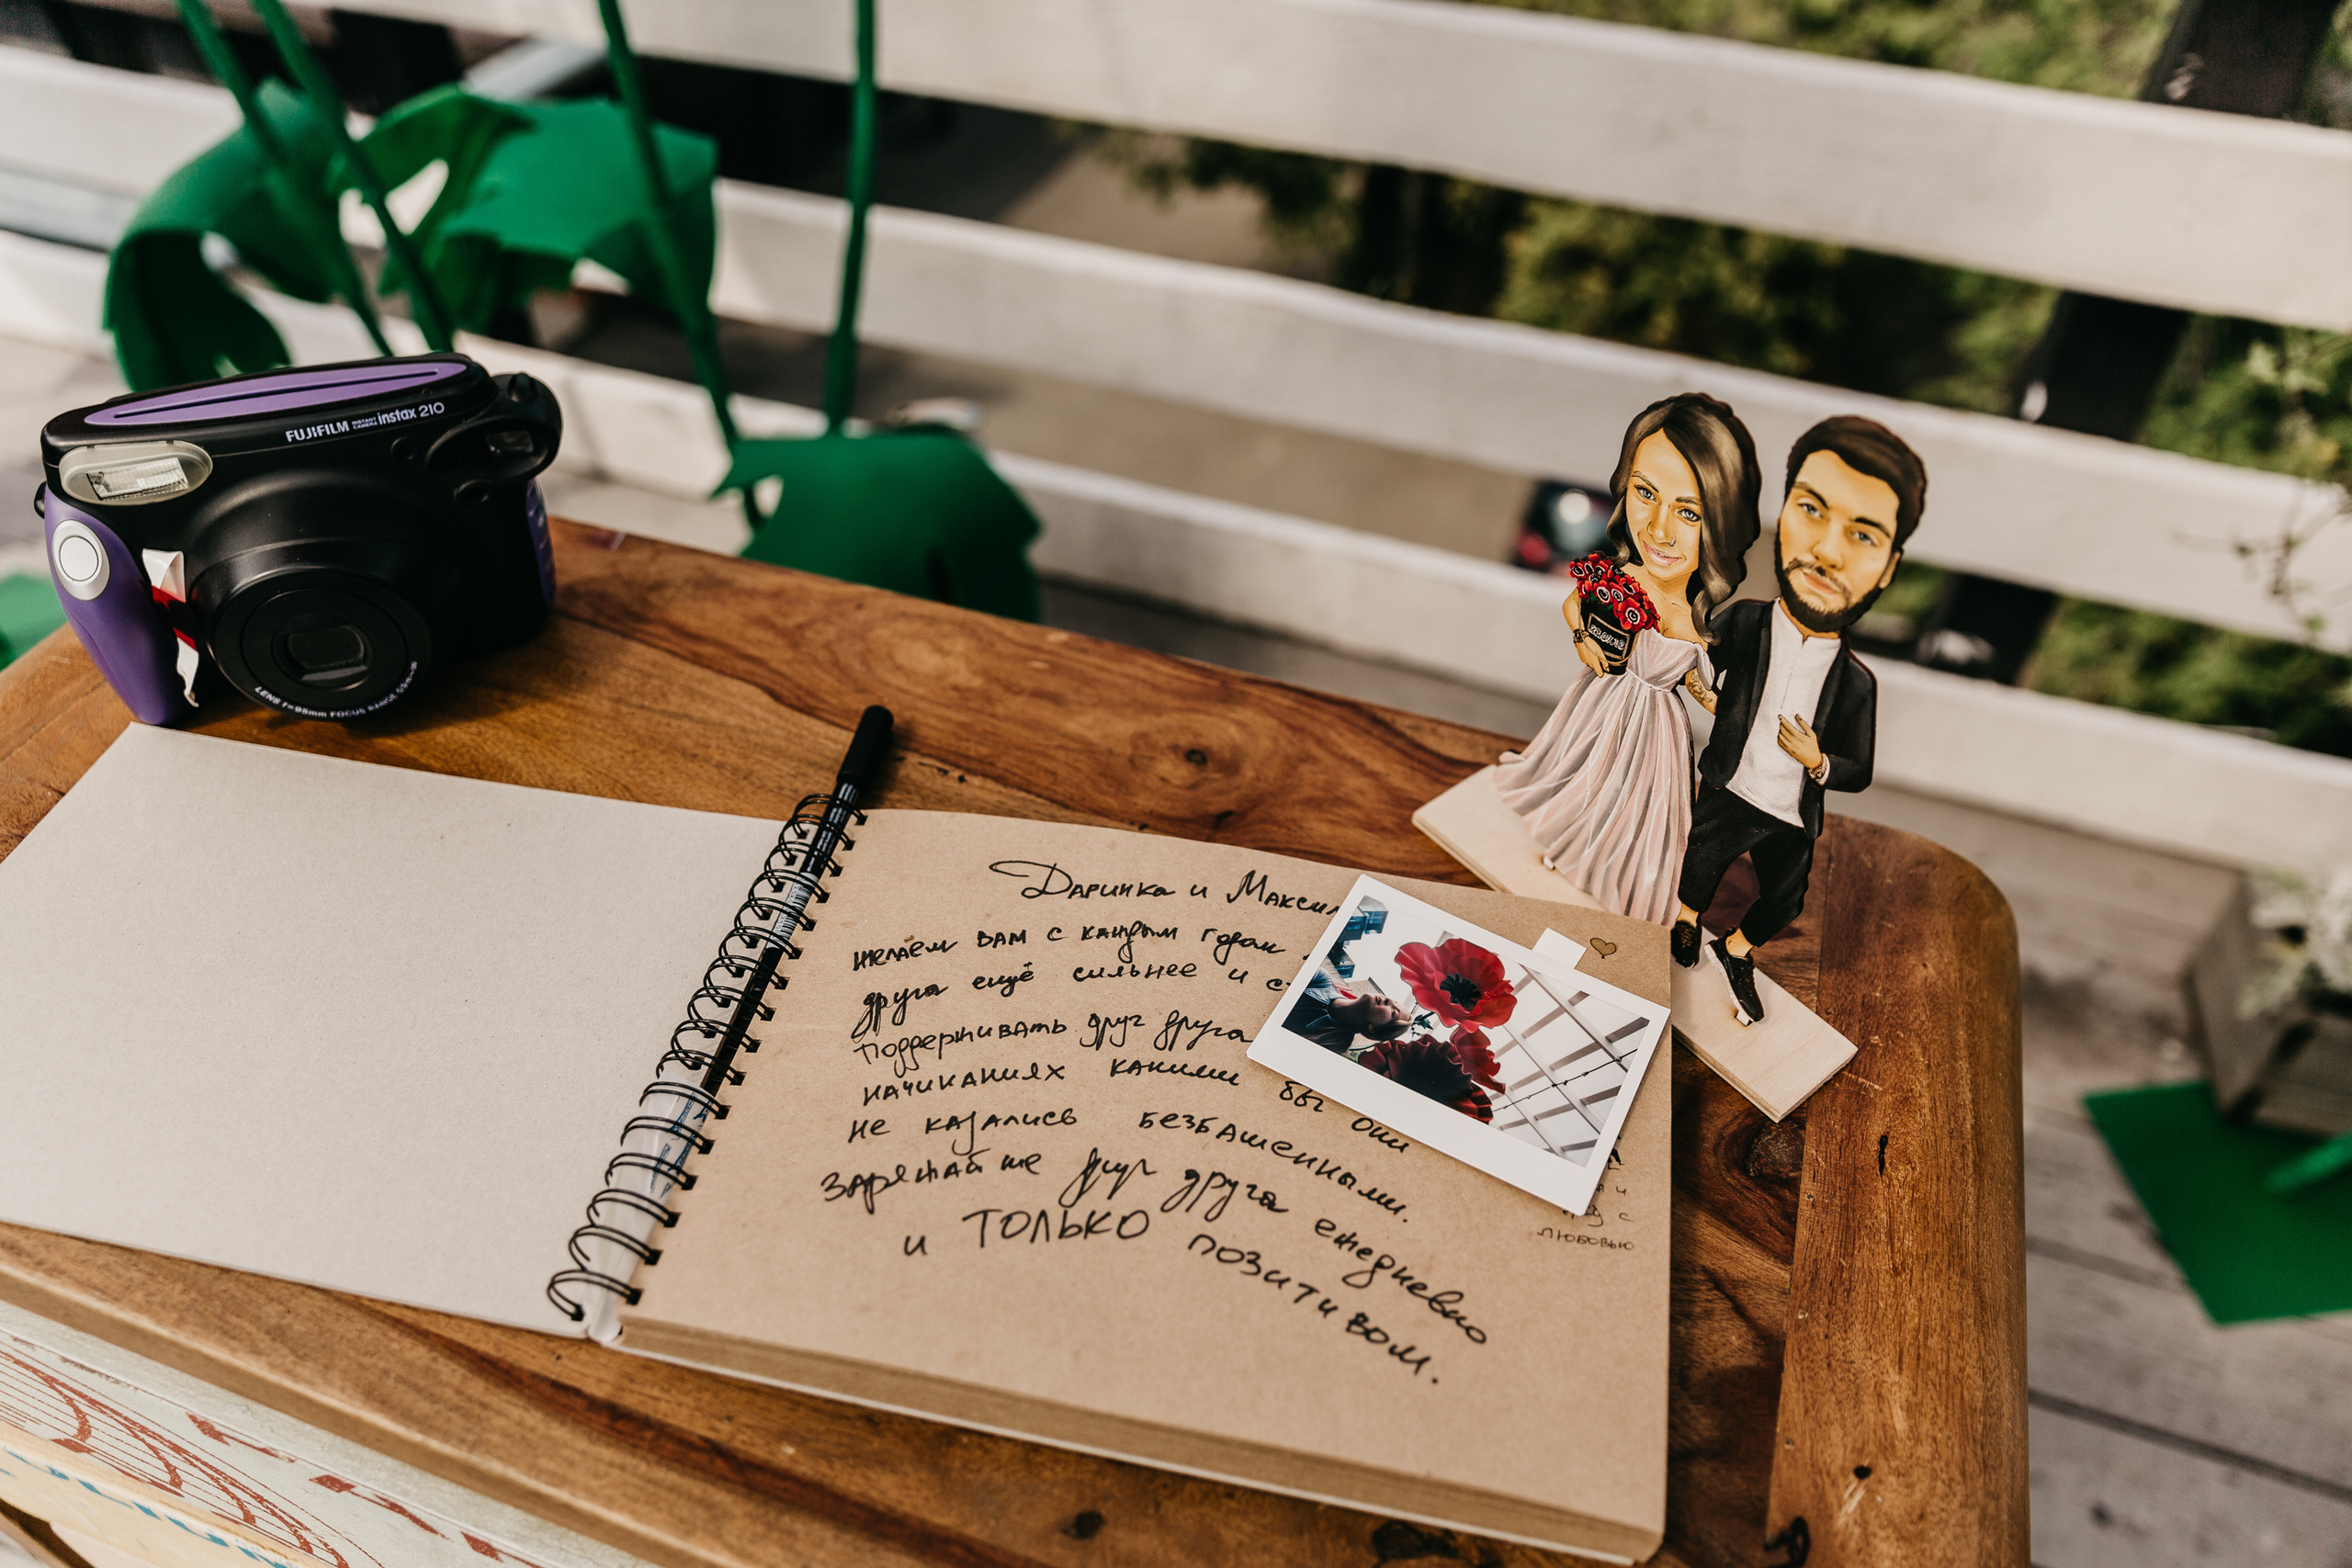 FUJIFILM INSTANT CAMERA instax 210
LENS f=95mm FOCUS RANGE
Даринка и Максим
желаем вам с каждым годом
друга ещё сильнее и
поддерживать друг друга
начинаниях какими бы они
не казались безбашенными.
Заряжайте друг друга ежедневно
и ТОЛЬКО позитивом.
с
любовью